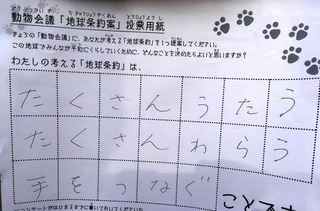 動物会議「地球条約案」投票用紙
きょうの「動物会議」に、あなたが考える「地球条約」を1つ提案してください。
この地球でみんなが平和にくらしていくために、どんなことを決めたらよいと思いますか?
わたしの考える「地球条約」は、
たくさんうたう
たくさんわらう
手をつなぐ
ことです